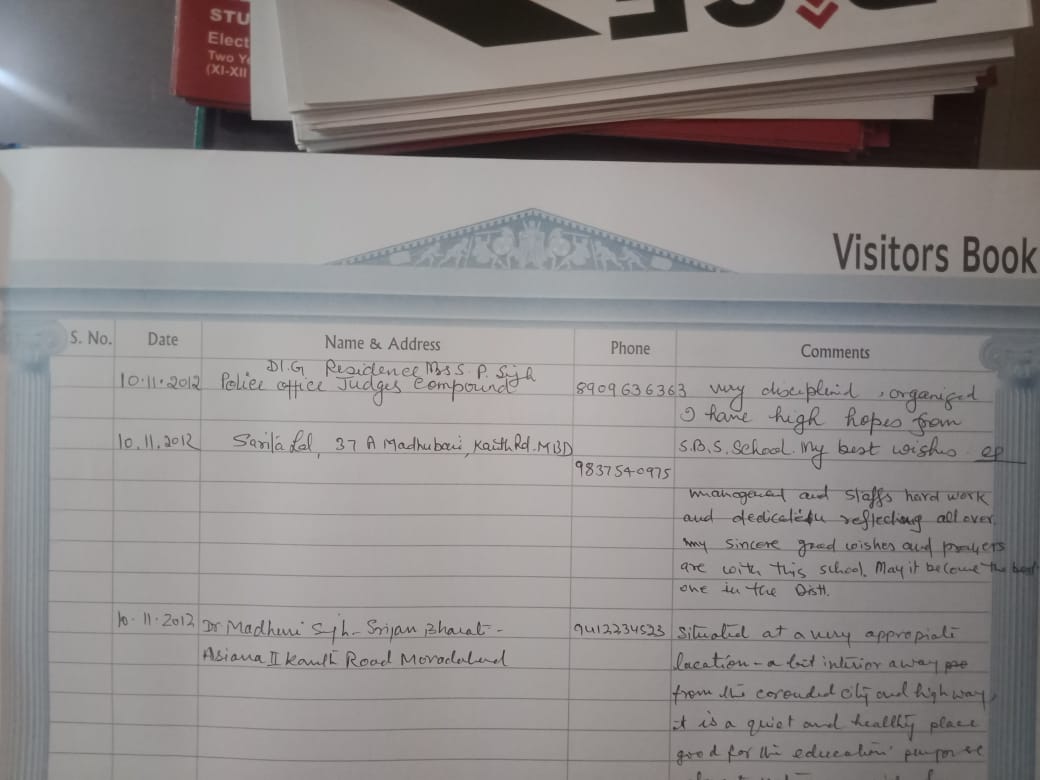 STU
Elect
Two Ye
(XI-XII
Visitors Book
S. No. Date Name & Address Phone Comments
10.11.2012 D.I.G Residence Mrs S. P. Singh 8909636363 very disciplend, organised
Police office Judges Compound
I have high hopes from
10.11.2012 Sarita Lal, 37 A Madhubani, Kanth Rd. MBD S.B.S. School. My best wishes
9837540975
management and staffs hard work
and dedication reflecting all over.
my sincere good wishes and prayers
are with this school. May it become the best
one in the Distt.
10.11.2012 Dr Madhuri Singh - Srijan Bharati - 9412234523 Situated at a very appropiate
Asiana II Kanth Road Moradabad location - a bit interior away
from the corouded city and highway,
it is a quiet and healthy place
good for the education purpose